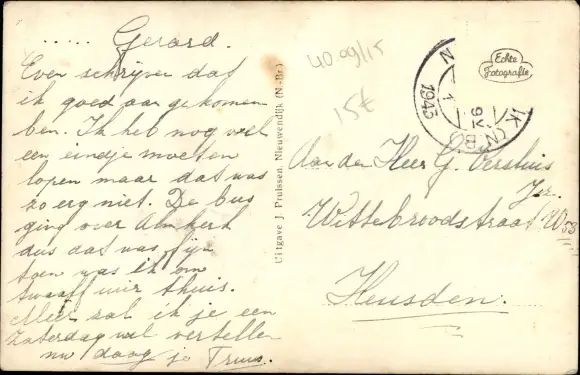 ..... Gerard.
Even schrijven dat
ik goed aan gekomen
ben. Ik heb nog wel
een eindje moeten
lopen maar dat was
zo erg niet. De bus
ging over Almkerk
dus dat was fijn
toen was ik om
twaalf uur thuis.
Meer zal ik je een
Zaterdag wel vertellen
nu daag je Truus.
Uitgave J. Pruissen, Nieuwendijk (N.-Br.)
4009/15
15€
Echte
Fotografie
1945
Aan der Heer G. Vershuis
Jr.
Wittebroodstraat W53
Heusden.